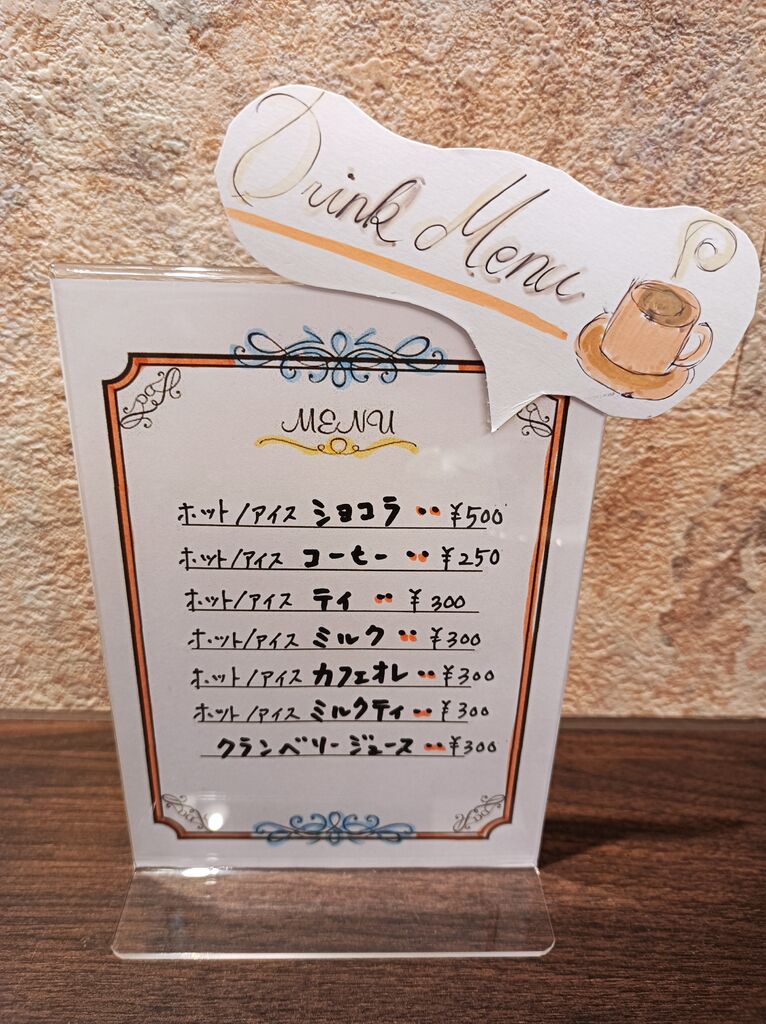 Drink Menu
MENU
ホット/アイス ショコラ ‥ ¥500
ホット/アイス コーヒー ‥ ¥250
ホット/アイス ティ ‥ ¥300
ホット/アイス ミルク ‥ ¥300
ホット/アイス カフェオレ ‥ ¥300
ホット/アイス ミルクティ ‥ ¥300
クランベリージュース ‥ ¥300